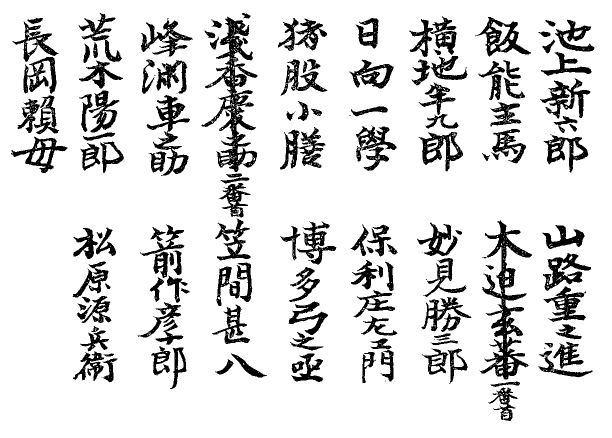 池上新六郎
飯能主馬
横地半九郎
日向一學
猪股小膳
淺香慶之助二番首
峰渕車之助
荒木陽一郎
長岡頼母
山路重之進
木迫玄蕃一番首
妙見勝三郎
保利庄左エ門
博多弓之丞
笠間甚八
箭作彦十郎
松原源兵衛